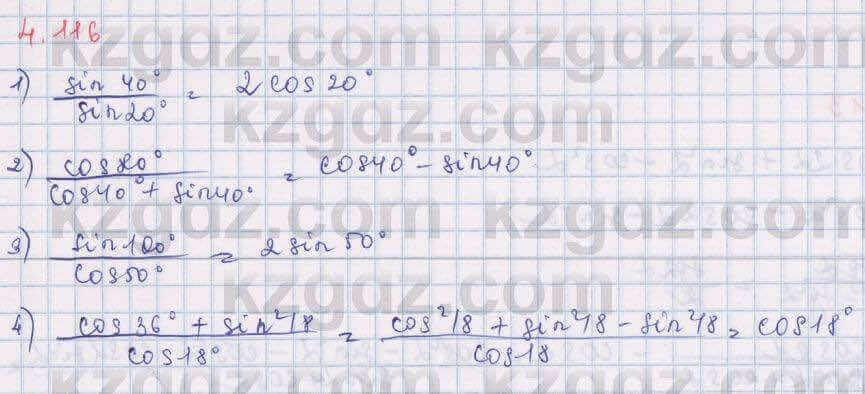 4.116
kzgdz.com kzgdz.com
1) sin 40° / sin 20° = 2 cos 20°
kzgdz.com
2) cos 80° / cos 40° + sin 40° = cos 40° - sin 40°
kzgdz.com kzgdz.com
3) sin 100° / cos 50° = 2 sin 50°
kzgdz.com
4) cos 36° + sin² 18 / cos 18° = cos² 18 + sin² 18 - sin² 18 / cos 18 = cos 18°
kzgdz.com kzgdz.com